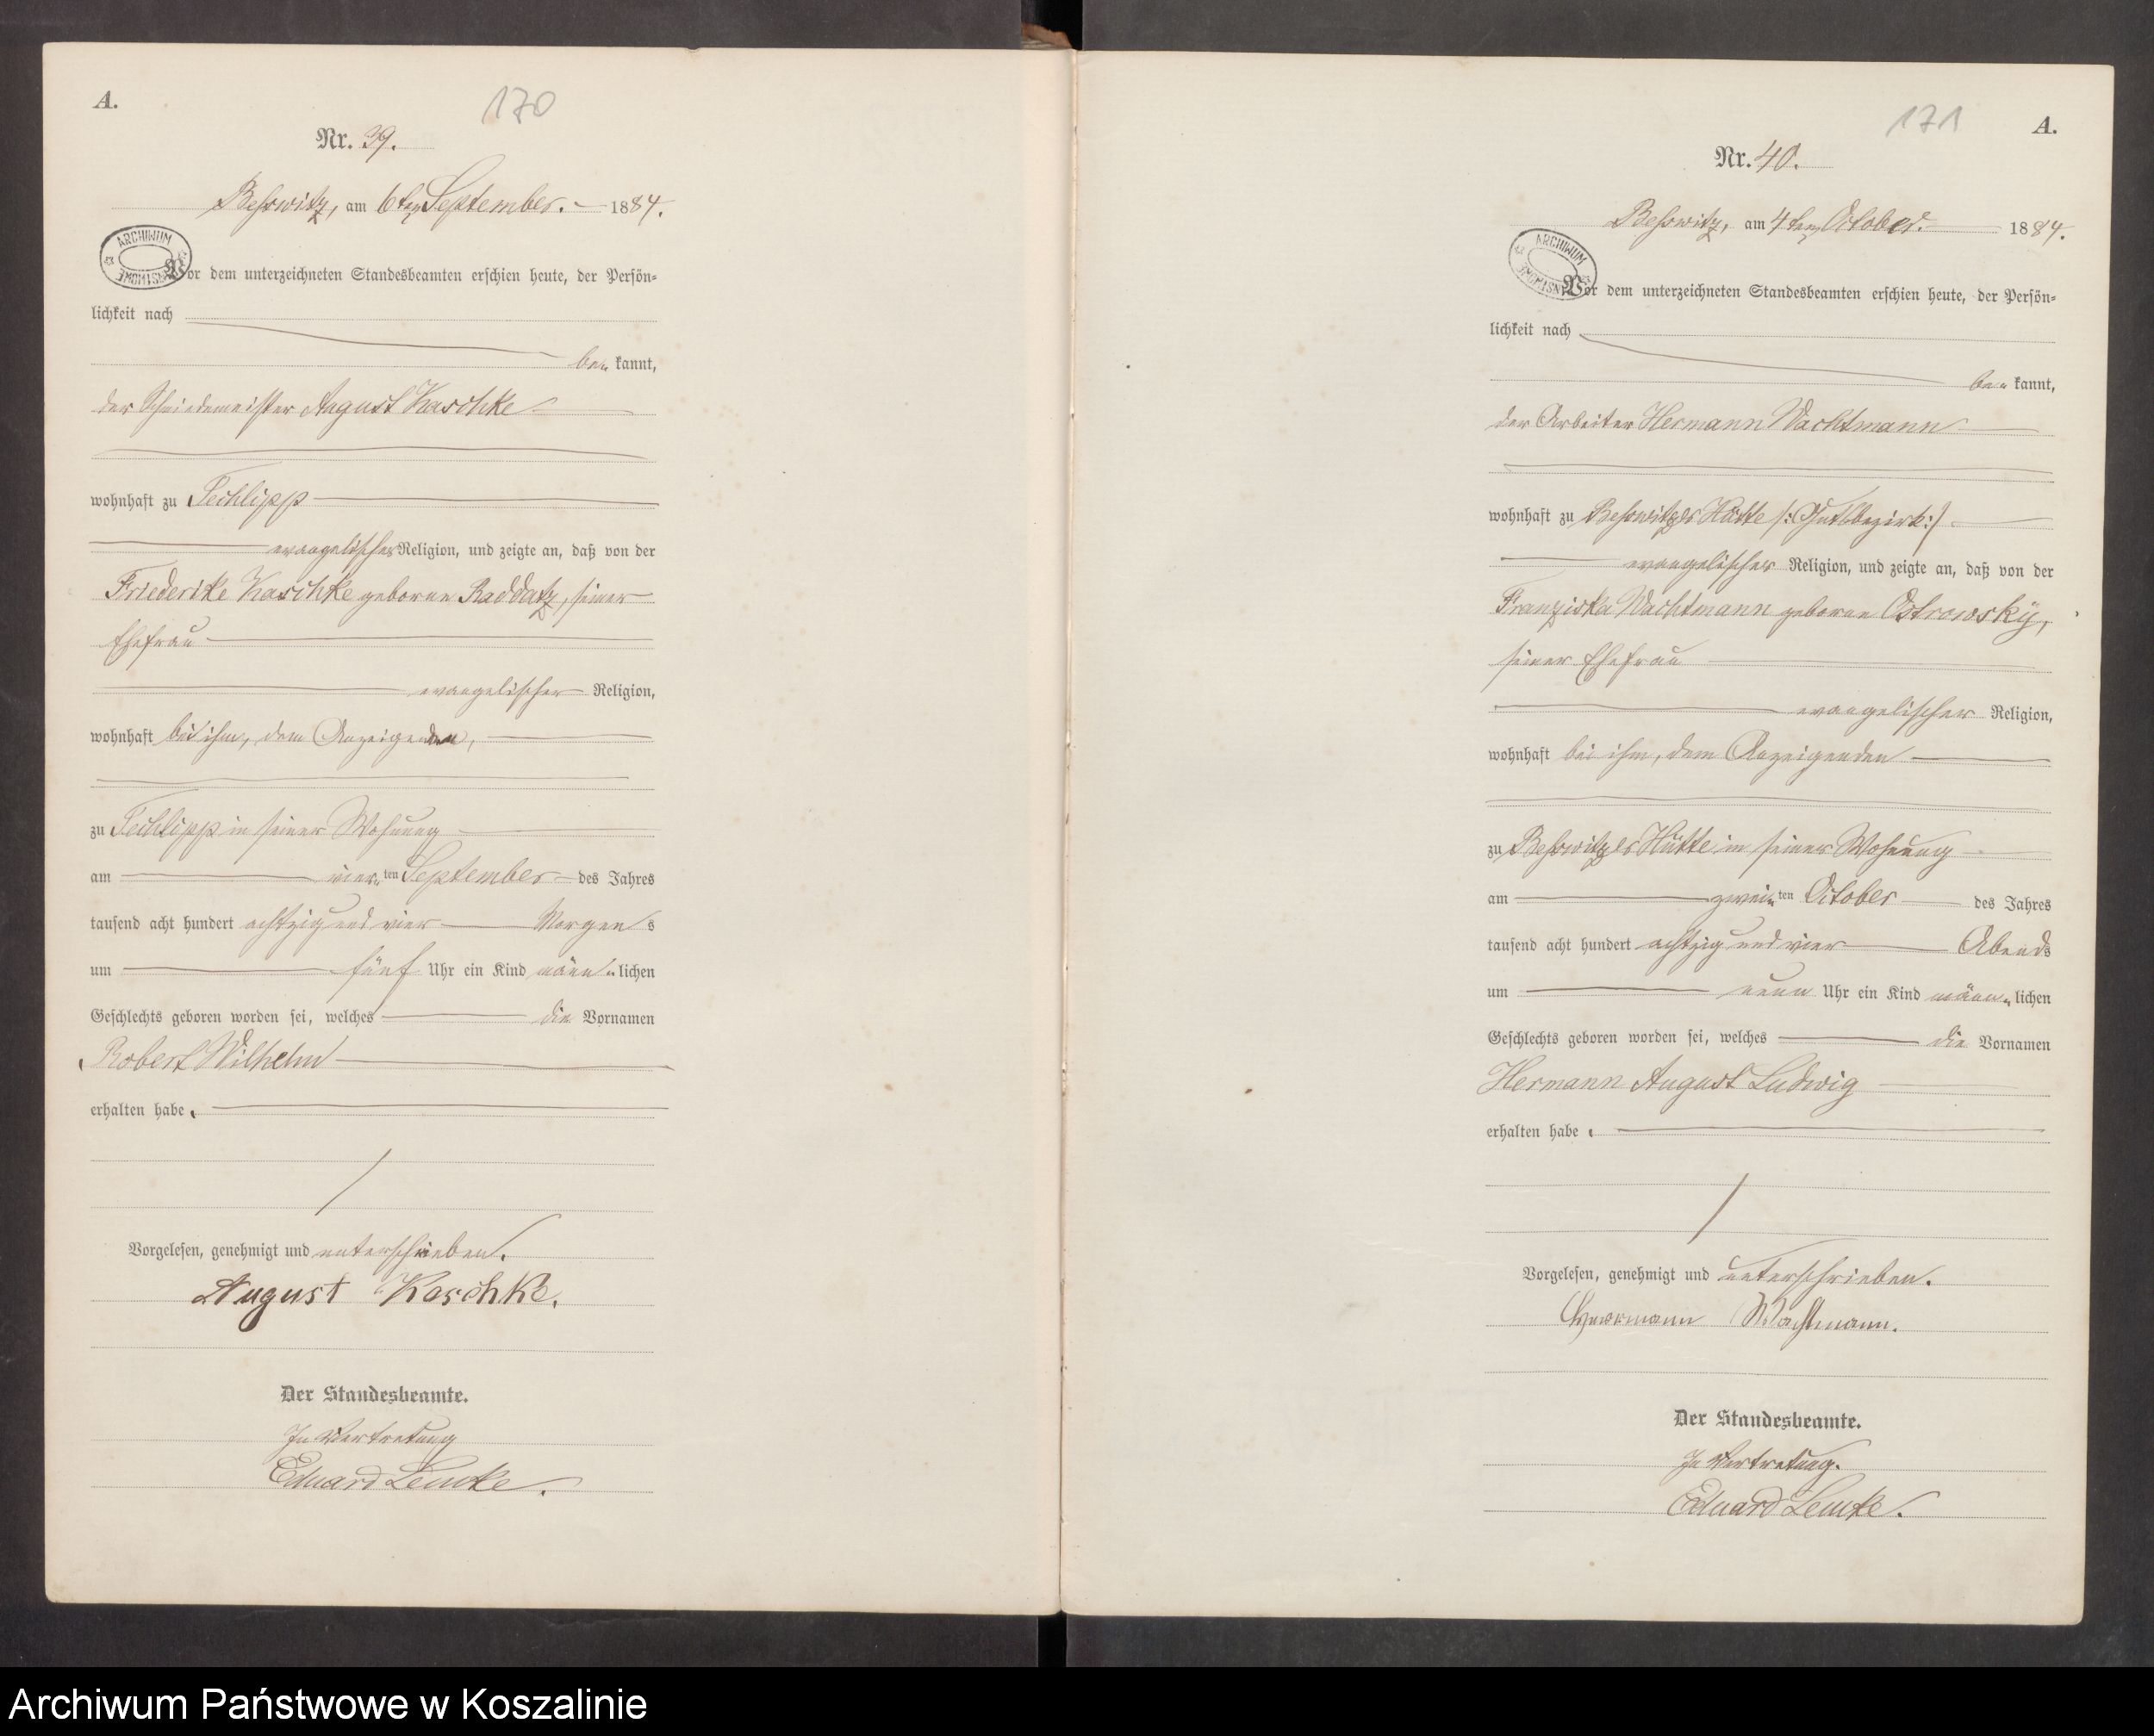 A.
170
Nr. 39.
Beßwitz, am 6ten September. 1884.
ARCHIWUM
Vor dem unterzeichneten Standesbeamten erschien heute, der Persön-
lichkeit nach
be kannt,
der Schmiedemeister August Kaschke
wohnhaft zu Techlipp
evangelischer Religion, und zeigte an, daß von der
Friederike Kaschke geborne Raddatz, seiner
Ehefrau
evangelischer Religion,
wohnhaft bei ihm, dem Anzeigenden,
zu Techlipp in seiner Wohnung
am vier ten September des Jahres
tausend acht hundert achtzig und vier Morgen s
um fünf Uhr ein Kind männ lichen
Geschlechts geboren worden sei, welches die Vornamen
Robert Wilhelm
erhalten habe.
Vorgelesen, genehmigt und unterschrieben.
August Kaschke.
Der Standesbeamte.
In Vertretung
Eduard Lemke.
171
A.
Nr. 40.
Beßwitz, am 4ten October. 1884.
ARCHIWUM
Vor dem unterzeichneten Standesbeamten erschien heute, der Persön-
lichkeit nach
be kannt,
der Arbeiter Hermann Wachtmann
wohnhaft zu Beßwitzer Hütte /: Gutsbezirk :/
evangelischer Religion, und zeigte an, daß von der
Franziska Wachtmann geborne Ostrowsky,
seiner Ehefrau
evangelischer Religion,
wohnhaft bei ihm, dem Anzeigenden
zu Beßwitzer Hütte in seiner Wohnung
am zwei ten October des Jahres
tausend acht hundert achtzig und vier Abends
um neun Uhr ein Kind männ lichen
Geschlechts geboren worden sei, welches die Vornamen
Hermann August Ludwig
erhalten habe.
Vorgelesen, genehmigt und unterschrieben.
Herrmann Wachtmann.
Der Standesbeamte.
In Vertretung.
Eduard Lemke.
Archiwum Państwowe w Koszalinie